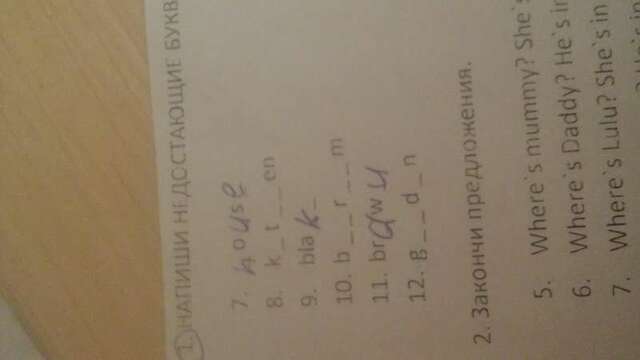 1. НАПИШИ НЕДОСТАЮЩИЕ БУКВ
7. house
8. k_t__en
9. blak_
10. b__r__m
11. brawu
12. g__d_n
2. Закончи предложения.
5. Where`s mummy? She`s
6. Where`s Daddy? He`s in
7. Where`s Lulu? She`s in